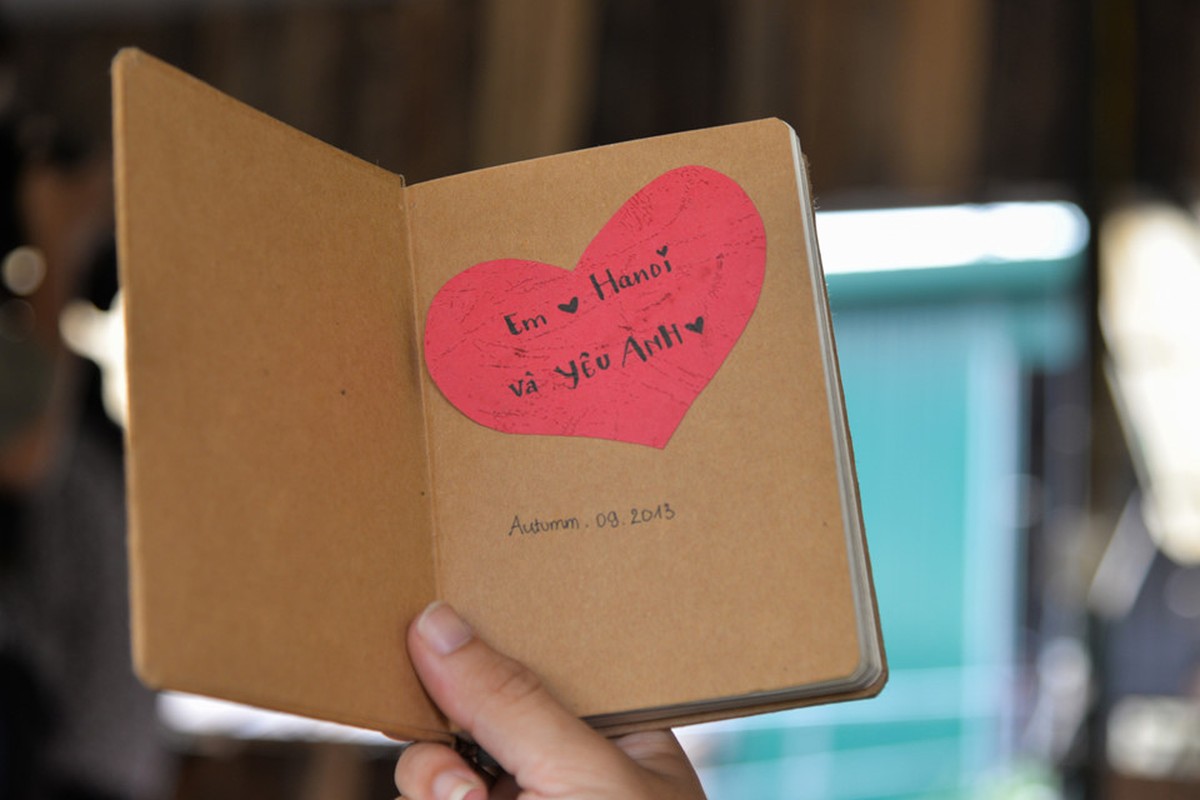 Em ♥ Hanoi
và YÊU ANH ♥
Autumm . 09 . 2013